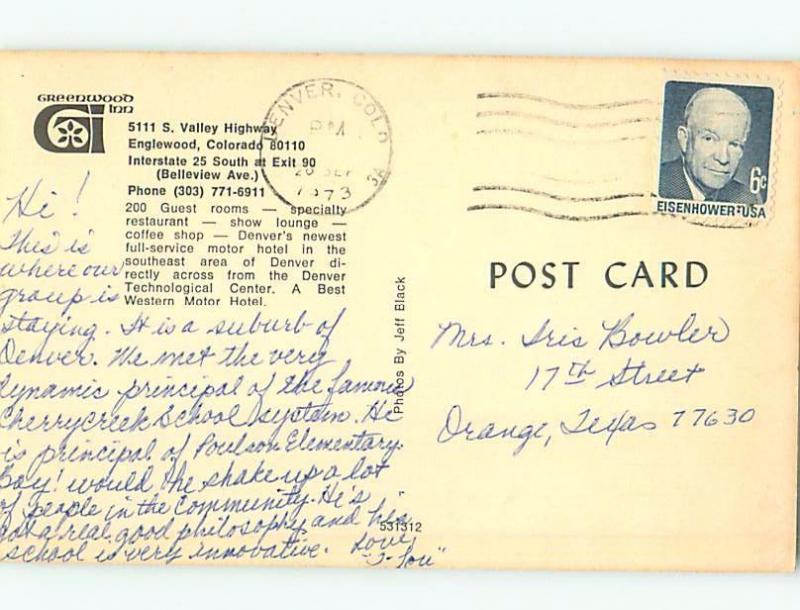 GREENWOOD
INN
5111 S. Valley Highway
Englewood, Colorado 80110
Interstate 25 South at Exit 90
(Belleview Ave.)
Phone (303) 771-6911
200 Guest rooms — specialty
restaurant — show lounge —
coffee shop — Denver's newest
full-service motor hotel in the
southeast area of Denver di-
rectly across from the Denver
Technological Center. A Best
Western Motor Hotel.
Hi!
This is
where our
group is
staying. It is a suburb of
Denver. We met the very
dynamic principal of the famous
Cherrycreek School system. He
is principal of Poulson Elementary.
Boy! would he shake up a lot
of people in the community. He's
got a real good philosophy and his
school is very innovative. Love,
"J-Lou"
Photos By Jeff Black
531312
DENVER, COLO
PM
SEP
1973
EISENHOWER·USA
6c
POST CARD
Mrs. Iris Bowler
17th Street
Orange, Texas 77630